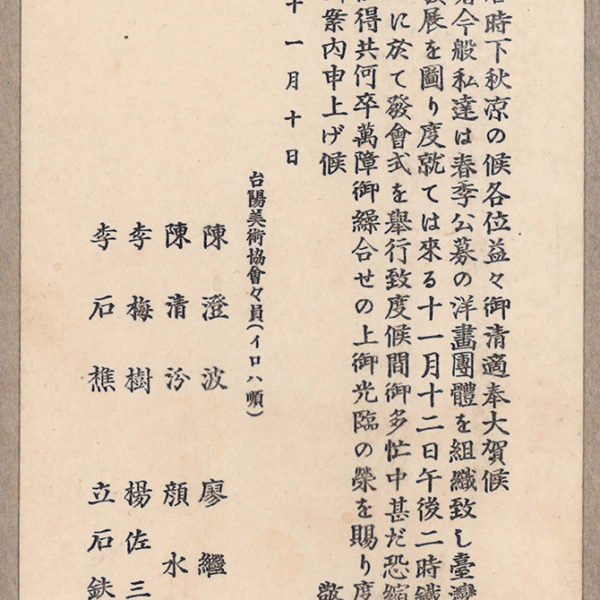 時下秋凉の候各位益々御清適奉大賀候
今般私達は春季公募の洋畫團體を組織致し臺灣
展を圖り度就ては來る十一月十二日午後二時鐵
に於て發會式を舉行致度候間御多忙中甚だ恐縮
得共何卒萬障御繰合せの上御光臨の榮を賜り度
案內申上げ候
敬
十一月十日
台陽美術協會々員(イロハ順)
陳澄波 廖繼
陳清汾 顏水
李梅樹 楊佐三
李石樵 立石鉄